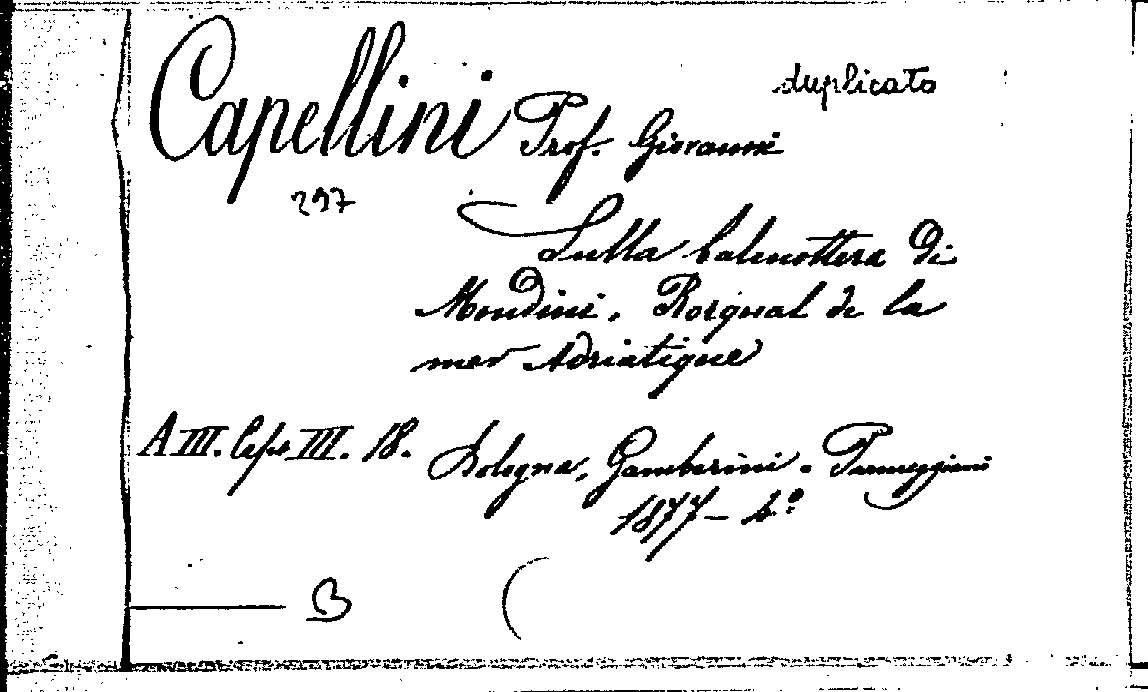 duplicato
Capellini Prof. Giovanni
297
Sulla balenottera di
Mondini, Rorqual de la
mer Adriatique
A III. Caps III. 18. Bologna, Gamberini e Parmeggiani
1877 - 4.º
B